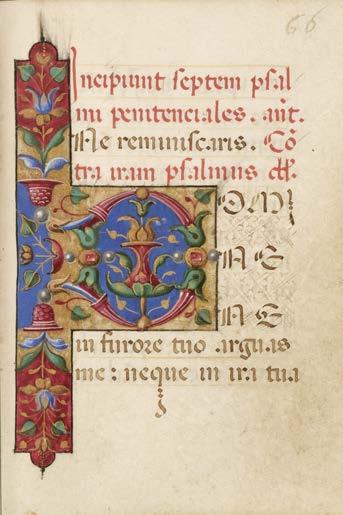 66
Incipiunt septem psal
mi penitenciales. an̄t.
Ne reminiscaris. Cō
tra iram psalmus
DOMI
NE
NE
in furore tuo arguas
me: neque in ira tua